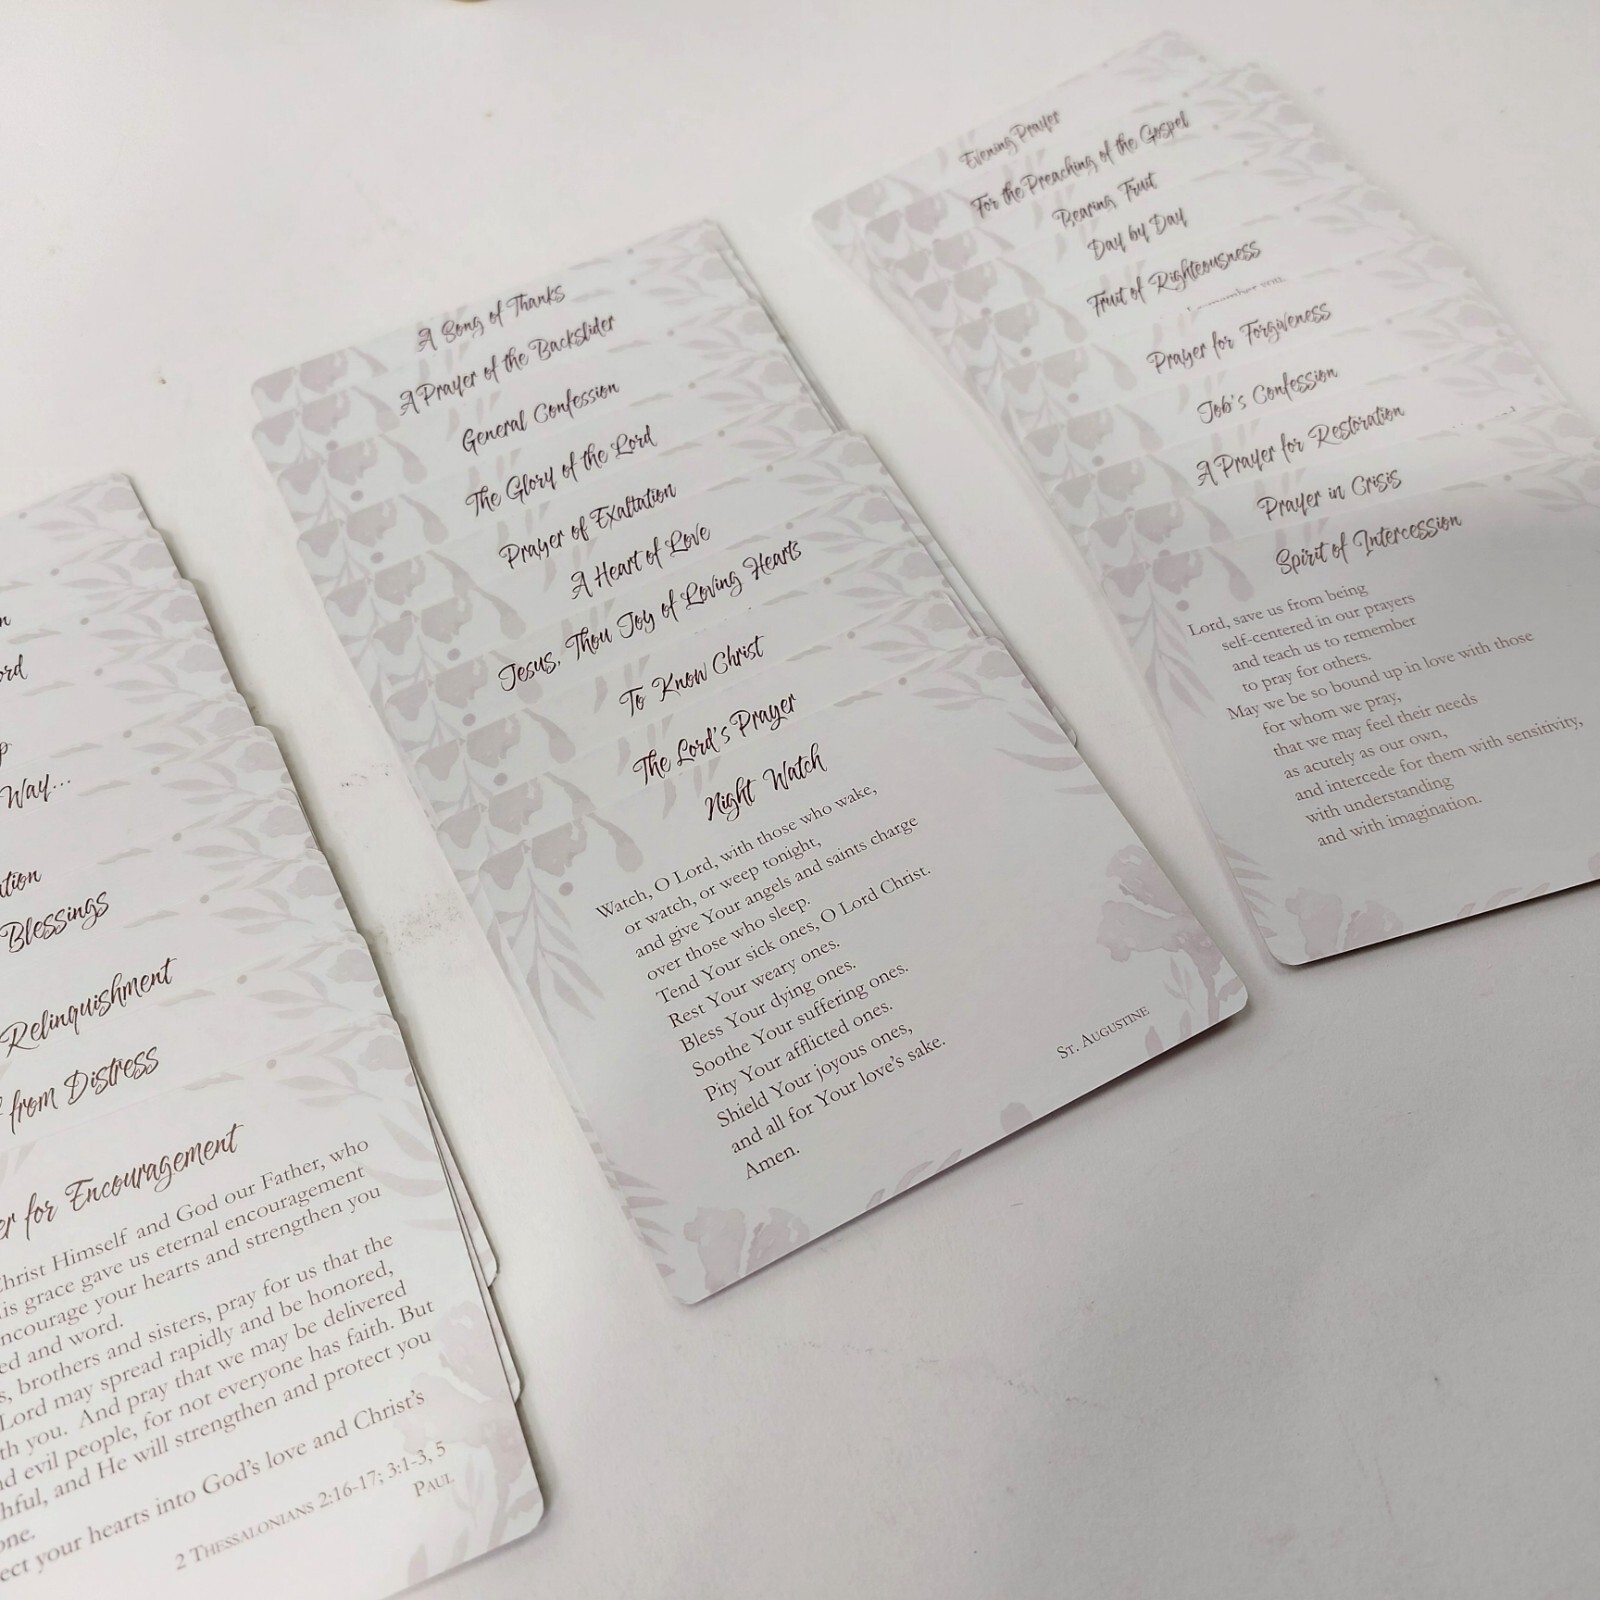 ord
Way...
Blessings
Relinquishment
from Distress
for Encouragement
Christ Himself and God our Father, who
is grace gave us eternal encouragement
ncourage your hearts and strengthen you
ed and word.
s, brothers and sisters, pray for us that the
Lord may spread rapidly and be honored,
th you. And pray that we may be delivered
nd evil people, for not everyone has faith. But
hful, and He will strengthen and protect you
one.
ect your hearts into God's love and Christ's
2 Thessalonians 2:16-17; 3:1-3, 5
Paul
A Song of Thanks
A Prayer of the Backslider
General Confession
The Glory of the Lord
Prayer of Exaltation
A Heart of Love
Jesus, Thou Joy of Loving Hearts
To Know Christ
The Lord's Prayer
Night Watch
Watch, O Lord, with those who wake,
or watch, or weep tonight,
and give Your angels and saints charge
over those who sleep.
Tend Your sick ones, O Lord Christ.
Rest Your weary ones.
Bless Your dying ones.
Soothe Your suffering ones.
Pity Your afflicted ones.
Shield Your joyous ones,
and all for Your love's sake.
Amen.
St. Augustine
Evening Prayer
For the Preaching of the Gospel
Bearing Fruit
Day by Day
Fruit of Righteousness
Prayer for Forgiveness
Job's Confession
A Prayer for Restoration
Prayer in Crisis
Spirit of Intercession
Lord, save us from being
self-centered in our prayers
and teach us to remember
to pray for others.
May we be so bound up in love with those
for whom we pray,
that we may feel their needs
as acutely as our own,
and intercede for them with sensitivity,
with understanding
and with imagination.